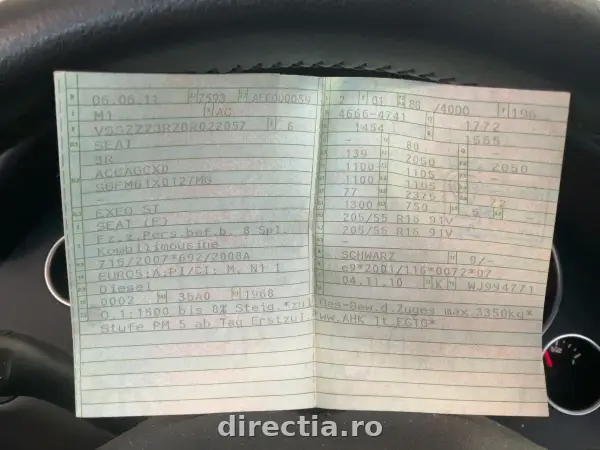 06.06.11 7593 AEF000059
M1 AC
VSSZZZ3RZBR022057 6
SEAT
3R
ACCAGCX0
SGFM61X012/MG
-
EXEO ST
SEAT (E)
Fz.z.Pers.bef.b. 8 Spl.
Kombilimousine
715/2007*692/2008A
EURO5;A;PI/CI; M, N1 I
Diesel
0002 35A0 1968
2 01 88 /4000 190
4666-4741 1772
1454 1565
- 80 -
139 2050 2050
1100 1105 -
1100 1105 -
77 2375 72
1300 750 5
205/55 R16 91V
205/55 R16 91V
-
SCHWARZ 9/-
e9*2001/116*0072*07
04.11.10 K WJ994771
O.1:1500 bis 8% Steig.*zul.Ges-Gew.d.Zuges max.3350kg*
Stufe PM 5 ab Tag Erstzul.*ww.AHK lt.EGTG*
directia.ro